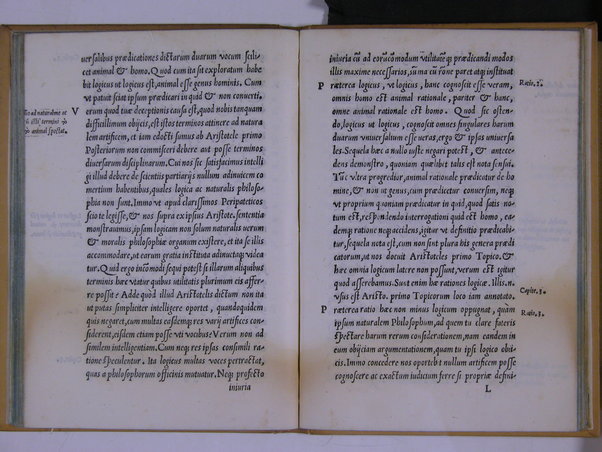 uersalibus prædicationes dictarum duarum vocum scili-
cet animal & homo. Quod cum ita sit exploratum habe
bit logicus ut logicus est, animal esse genus hominis. Cum
vt patuit sciat ipsum prædicari in quid & non conuerti.
Vo ad naturalem et
illi termini
animal spectat.
V
erum quod tuæ deceptionis causa est, quod nobis tanquam
difficillimum obijcis, est istos terminos attinere ad natura
lem artificem, et iam edocti sumus ab Aristotele primo
Posteriorum non commisceri debere aut posse terminos
diuersarum disciplinarum. Cui nos sic satisfacimus intelli
gi illud debere de scientijs partiarijs nullum adinuicem co
mertium habentibus, quales logica ac naturalis philoso-
phia non sunt. Immo vt apud clarissimos Peripateticos
scio te legisse, & nos supra ex ipsius Aristote. sententia
monstrauimus, ipsam logicam non solum naturalis verum
& moralis philosophiæ organum existere, et ita se illis
accommodare, ut earum gratia instituta adinuentaq; videa
tur. Quid ergo incōmodi sequi potest si illarum aliquibus
terminis hæc vtatur quibus vtilitatis plurimum eis affer-
re possit? Adde quod illud Aristotelis dictum non ita
ut putas simpliciter intelligere oportet, quandoquidem
quis negaret, cum multas easdemq; res varij artifices con-
siderent, eisdem etiam posse vti vocibus? Verum non ad
similem intelligentiam. Cum neq; res ipsas consimili ra-
tione speculentur. Ita logicus multas voces pertractat,
quas a philosophorum officinis mutuatur. Neq; profecto
iniuria
iniuria cū ad eorū cōmodum vtilitatēq; prædicandi modos
illis maxime necessarios, sua cū rōne paret atq; instituat
P
Ratio. 2ª.
ræterea logicus, vt logicus, hanc cognoscit esse veram,
omnis homo est animal rationale, pariter & hanc,
omne animal rationale est homo. Quod sic osten-
do, logicus ut logicus, cognoscit omnes singulares harum
duarum vniuersalium esse veras, ergo & ipsas vniuersa
les. Sequela hæc a nullo iuste negari potest, & antece-
dens demonstro, quoniam quælibet talis est nota sensui.
Tūc vltra progredior, animal rationale prædicatur de ho
mine, & non ut genus, cum prædicetur conuersim, neq;
vt proprium quoniam prædicatur in quid, quod satis no-
tum est, respōdendo interrogationi quid est homo, ea-
demq; ratione neq; accidens, igitur vt definitio prædicabi-
tur, sequela nota est, cum non sint plura his genera prædi
catorum, ut nos docuit Aristoteles primo Topico. &
hæc omnia logicum latere non possunt, verum est igitur
quod asserebamus. Sunt enim hæ rationes logicæ. Illis. n.
Capite. 3º.
vsus est Aristo. primo Topicorum loco iam annotato.
P
Ratio. 3ª.
ræterea ratio hæc non minus logicum oppugnat, quàm
ipsum naturalem Philosophum, ad quem tu clare fateris
spectare harum rerum considerationem, nam eandem in
eum obijciam argumentationem, quam tu ipsi logico obi-
cis. Immo concedere nos oportebit nullum artificem posse
cognoscere ac exactum iudicium ferre si propriæ defini-
L